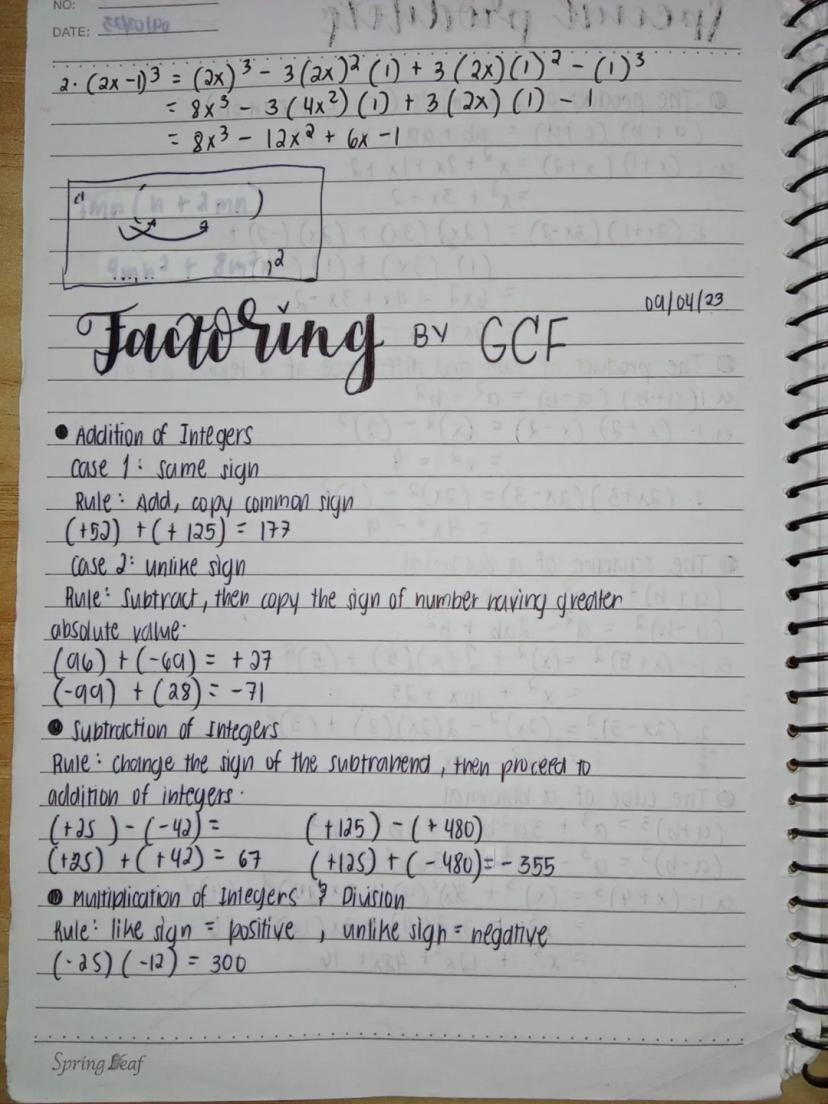 NO:
DATE: 09/03/23
2. (2x-1)³ = (2x)³ - 3(2x)²(1) + 3(2x)(1)² - (1)³
= 8x³ - 3(4x²)(1) + 3(2x)(1) - 1
= 8x³ - 12x² + 6x - 1
mn(n + 2mn)
Factoring BY GCF
09/04/23
● Addition of Integers
Case 1: same sign
Rule: Add, copy common sign
(+52) + (+125) = 177
Case 2: unlike sign
Rule: Subtract, then copy the sign of number having greater
absolute value.
(96) + (-69) = +27
(-99) + (28) = -71
● Subtraction of Integers
Rule: change the sign of the subtrahend, then proceed to
addition of integers.
(+25) - (-42) = (+125) - (+480)
(+25) + (+42) = 67 (+125) + (-480) = -355
● Multiplication of Integers & Division
Rule: like sign = positive, unlike sign = negative
(-25)(-12) = 300
Spring Leaf